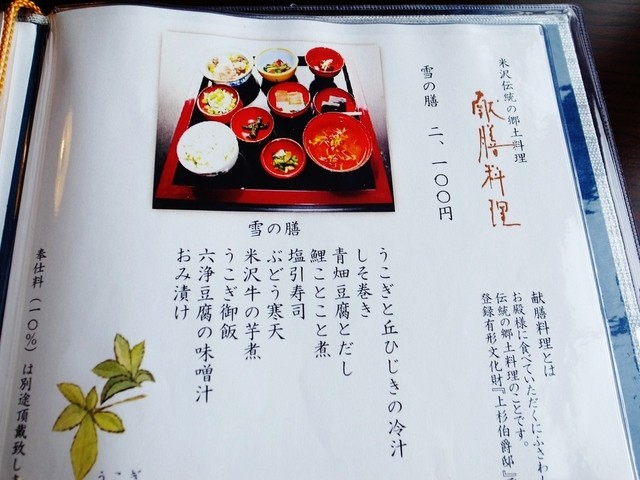 米沢伝統の郷土料理
献膳料理
雪の膳 二、一〇〇円
献膳料理とは
お殿様に食べていただくにふさわし
伝統の郷土料理のことです。
登録有形文化財『上杉伯爵邸』
雪の膳
うこぎと丘ひじきの冷汁
しそ巻き
青畑豆腐とだし
鯉ことこと煮
塩引寿司
ぶどう寒天
米沢牛の芋煮
うこぎ御飯
六浄豆腐の味噌汁
おみ漬け
奉仕料（一〇％）は別途頂戴致しま
うこぎ